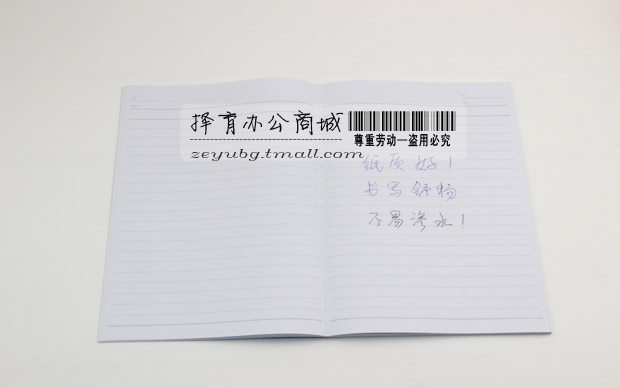 择育办公商城
尊重劳动—盗用必究
zeyubg.tmall.com
纸质好！
书写舒畅
不易渗水！